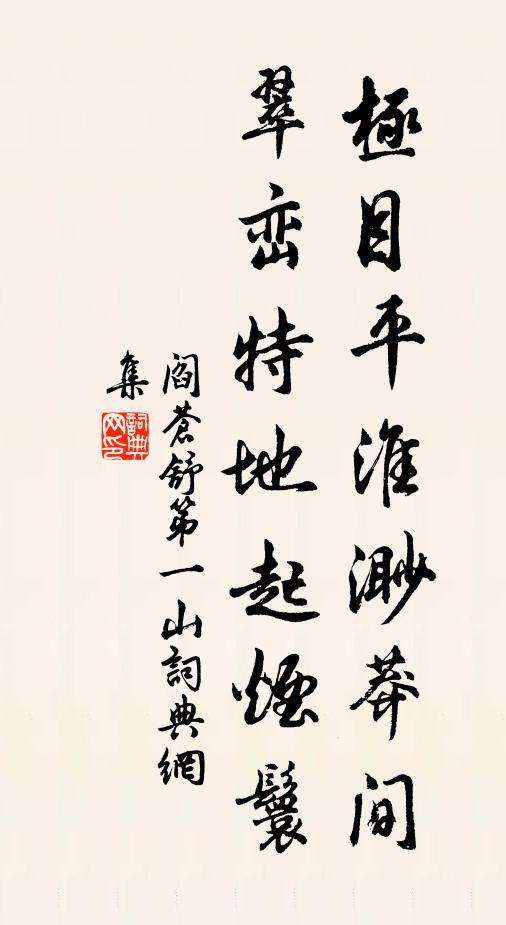 極目平淮渺莽间
翠峦特地起煙鬟
阎蒼舒第一山詞典網
集
詞典
网印